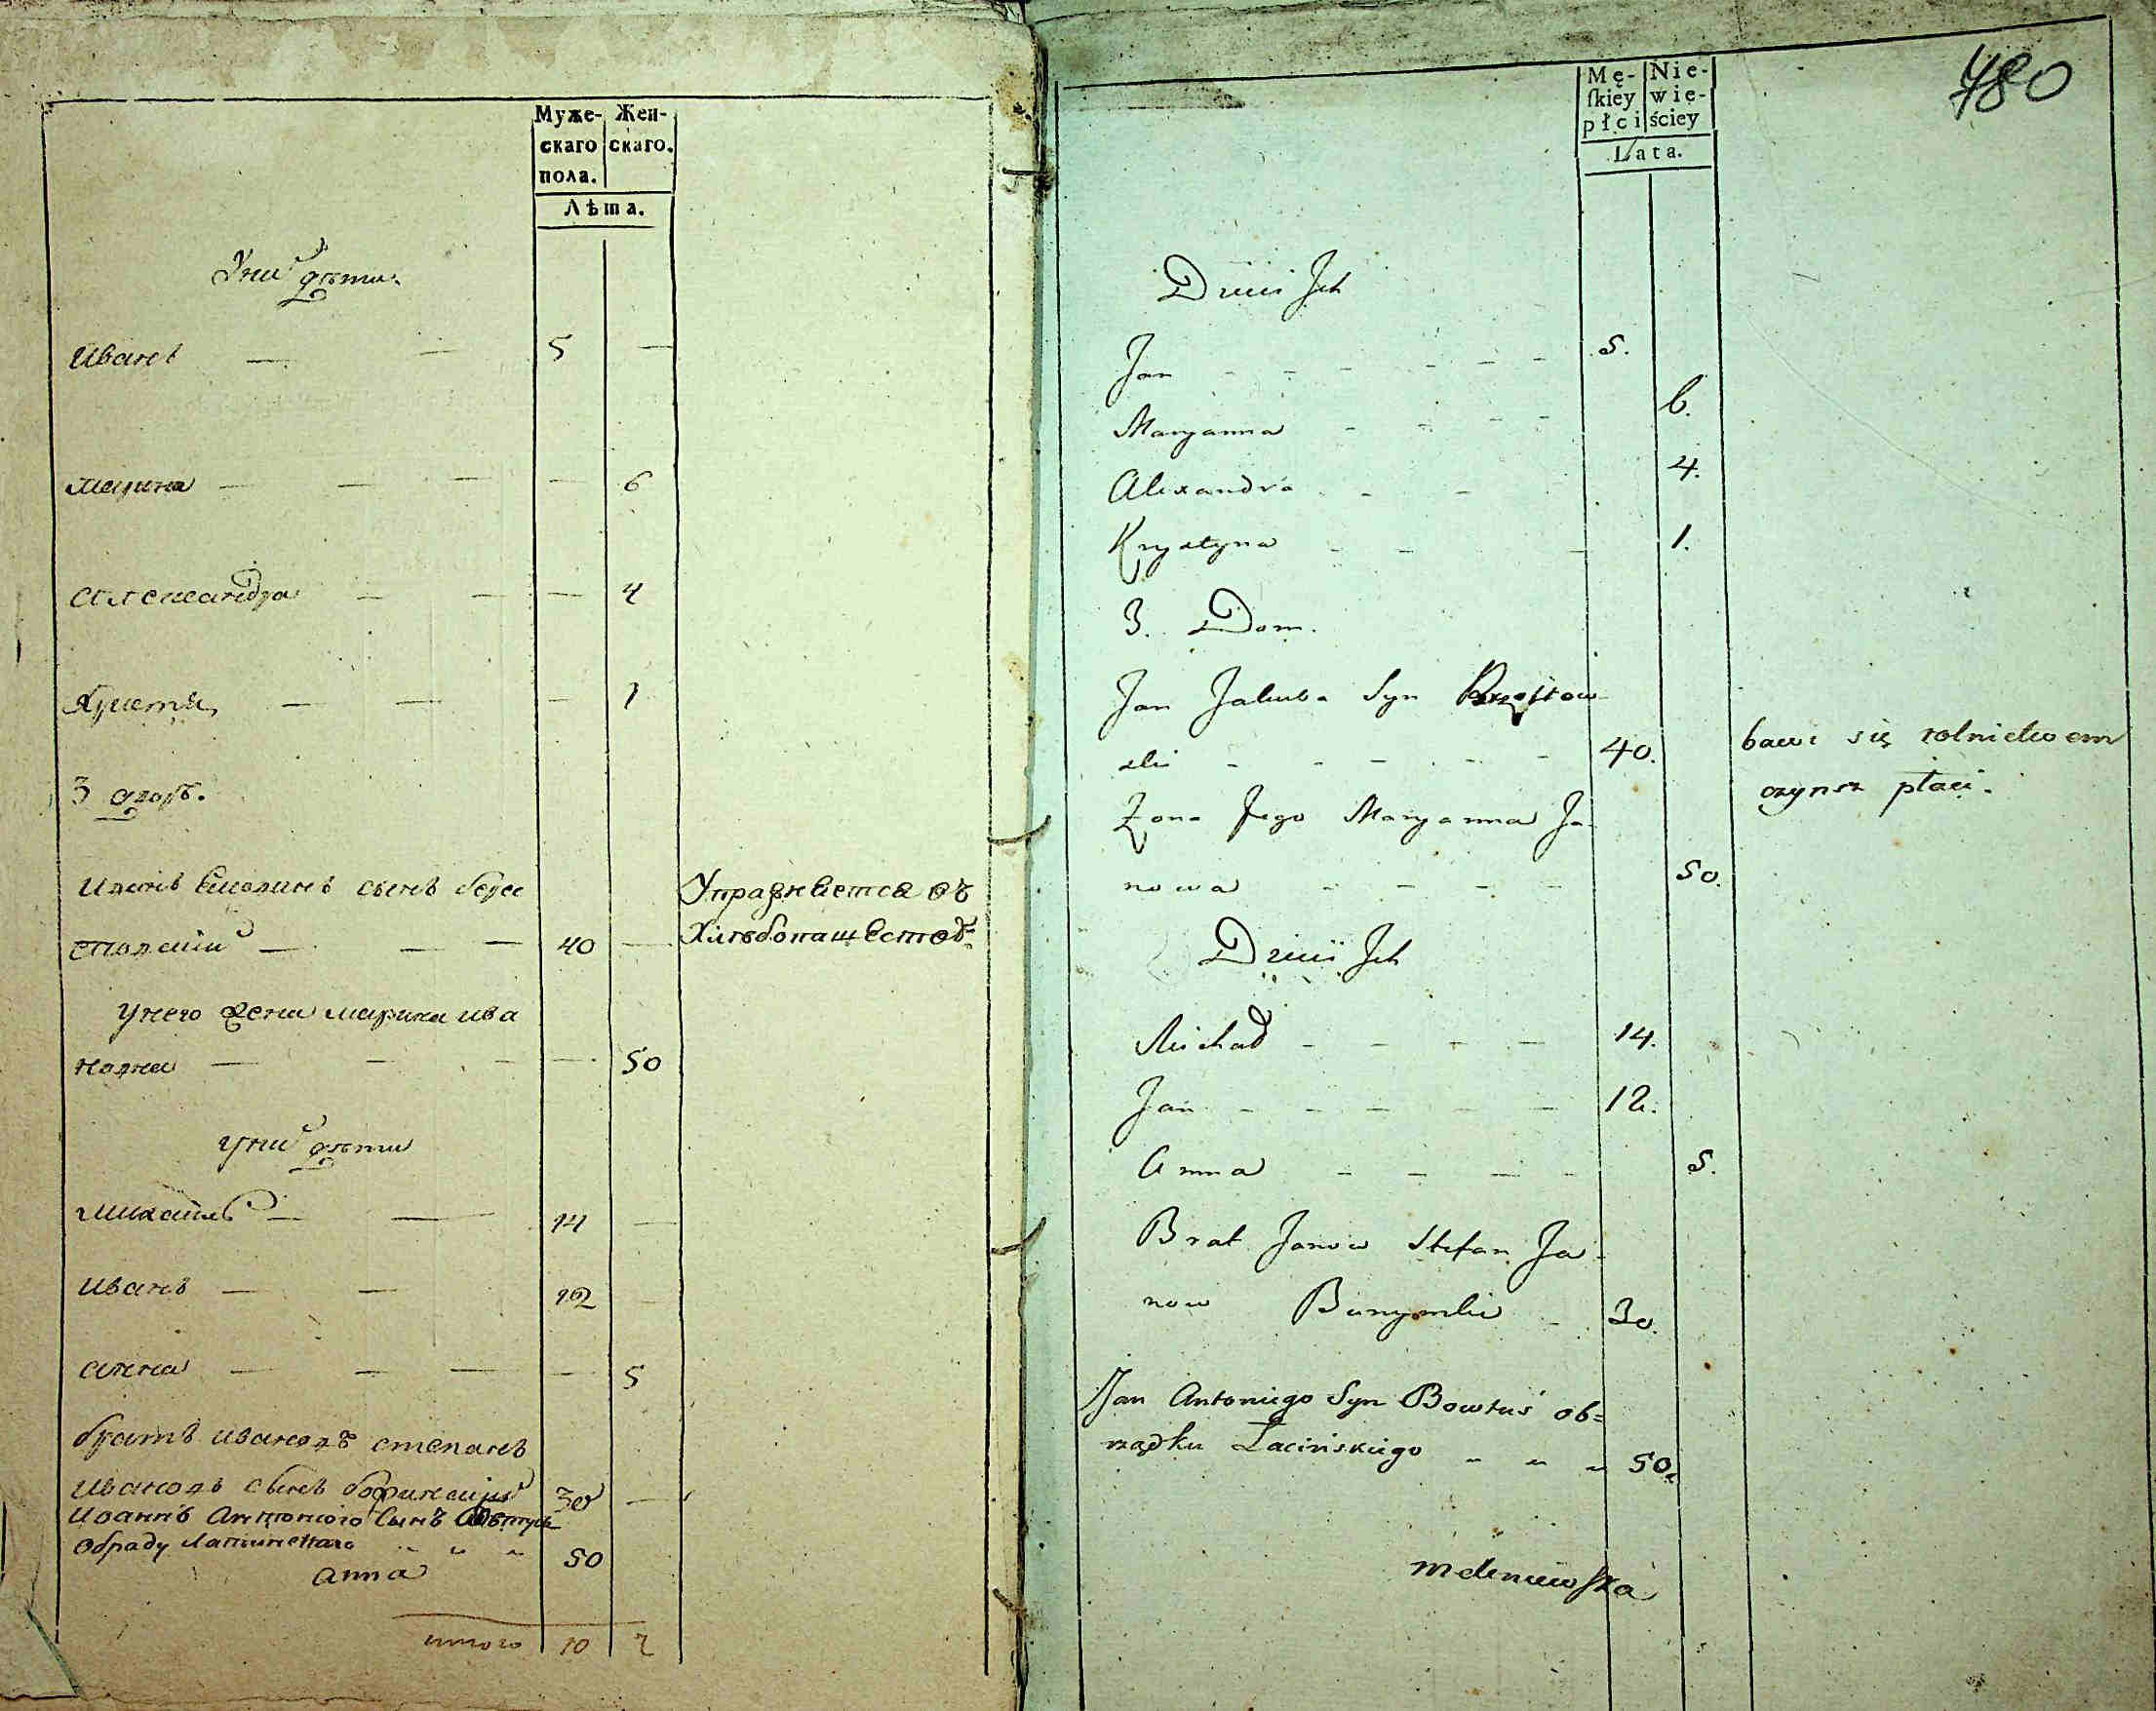 Муже-
скаго
пола.
Жен-
скаго.
Лѣта.
У ни дѣти.
Иванъ — — 5 —
Марина — — — — 6
Александра — — — 4
Христина — — — 1
3 дворъ.
Иванъ сынъ
40 — Упражняется въ
Хлѣбопашествѣ
у него жена марина ива
новна — — — — 50
у ни дѣти
михаилъ — — 14 —
иванъ — — 12 —
анна — — — — 5
братъ ивановъ степанъ
ивановъ сынъ 30 —
Иоаннъ Антонiого Сынъ
Обраду Латинскаго „ „ „ 50
anna
итого 10 7
480
Mę-
skiey
płci
Nie-
wie-
ściey
Lata.
Dzieci Ich
Jan - - - - - - 5.
Maryanna - - - - 6.
Alexandra - - - 4.
Krystyna - - - 1.
3. Dom.
Jan Jakuba Syn Brzostow-
ski - - - - - - 40. bawi się rolnictwem
czynsz płaci.
Żona Jego Maryanna Ja-
nowa - - - - 50.
Dzieci Ich
Michał - - - - 14.
Jan - - - - - 12.
Anna - - - - 5.
Brat Janow Stefan Ja-
now - 30.
Jan Antoniego Syn Bowtuś ob=
rządku Łacińskiego „ „ „ 50.